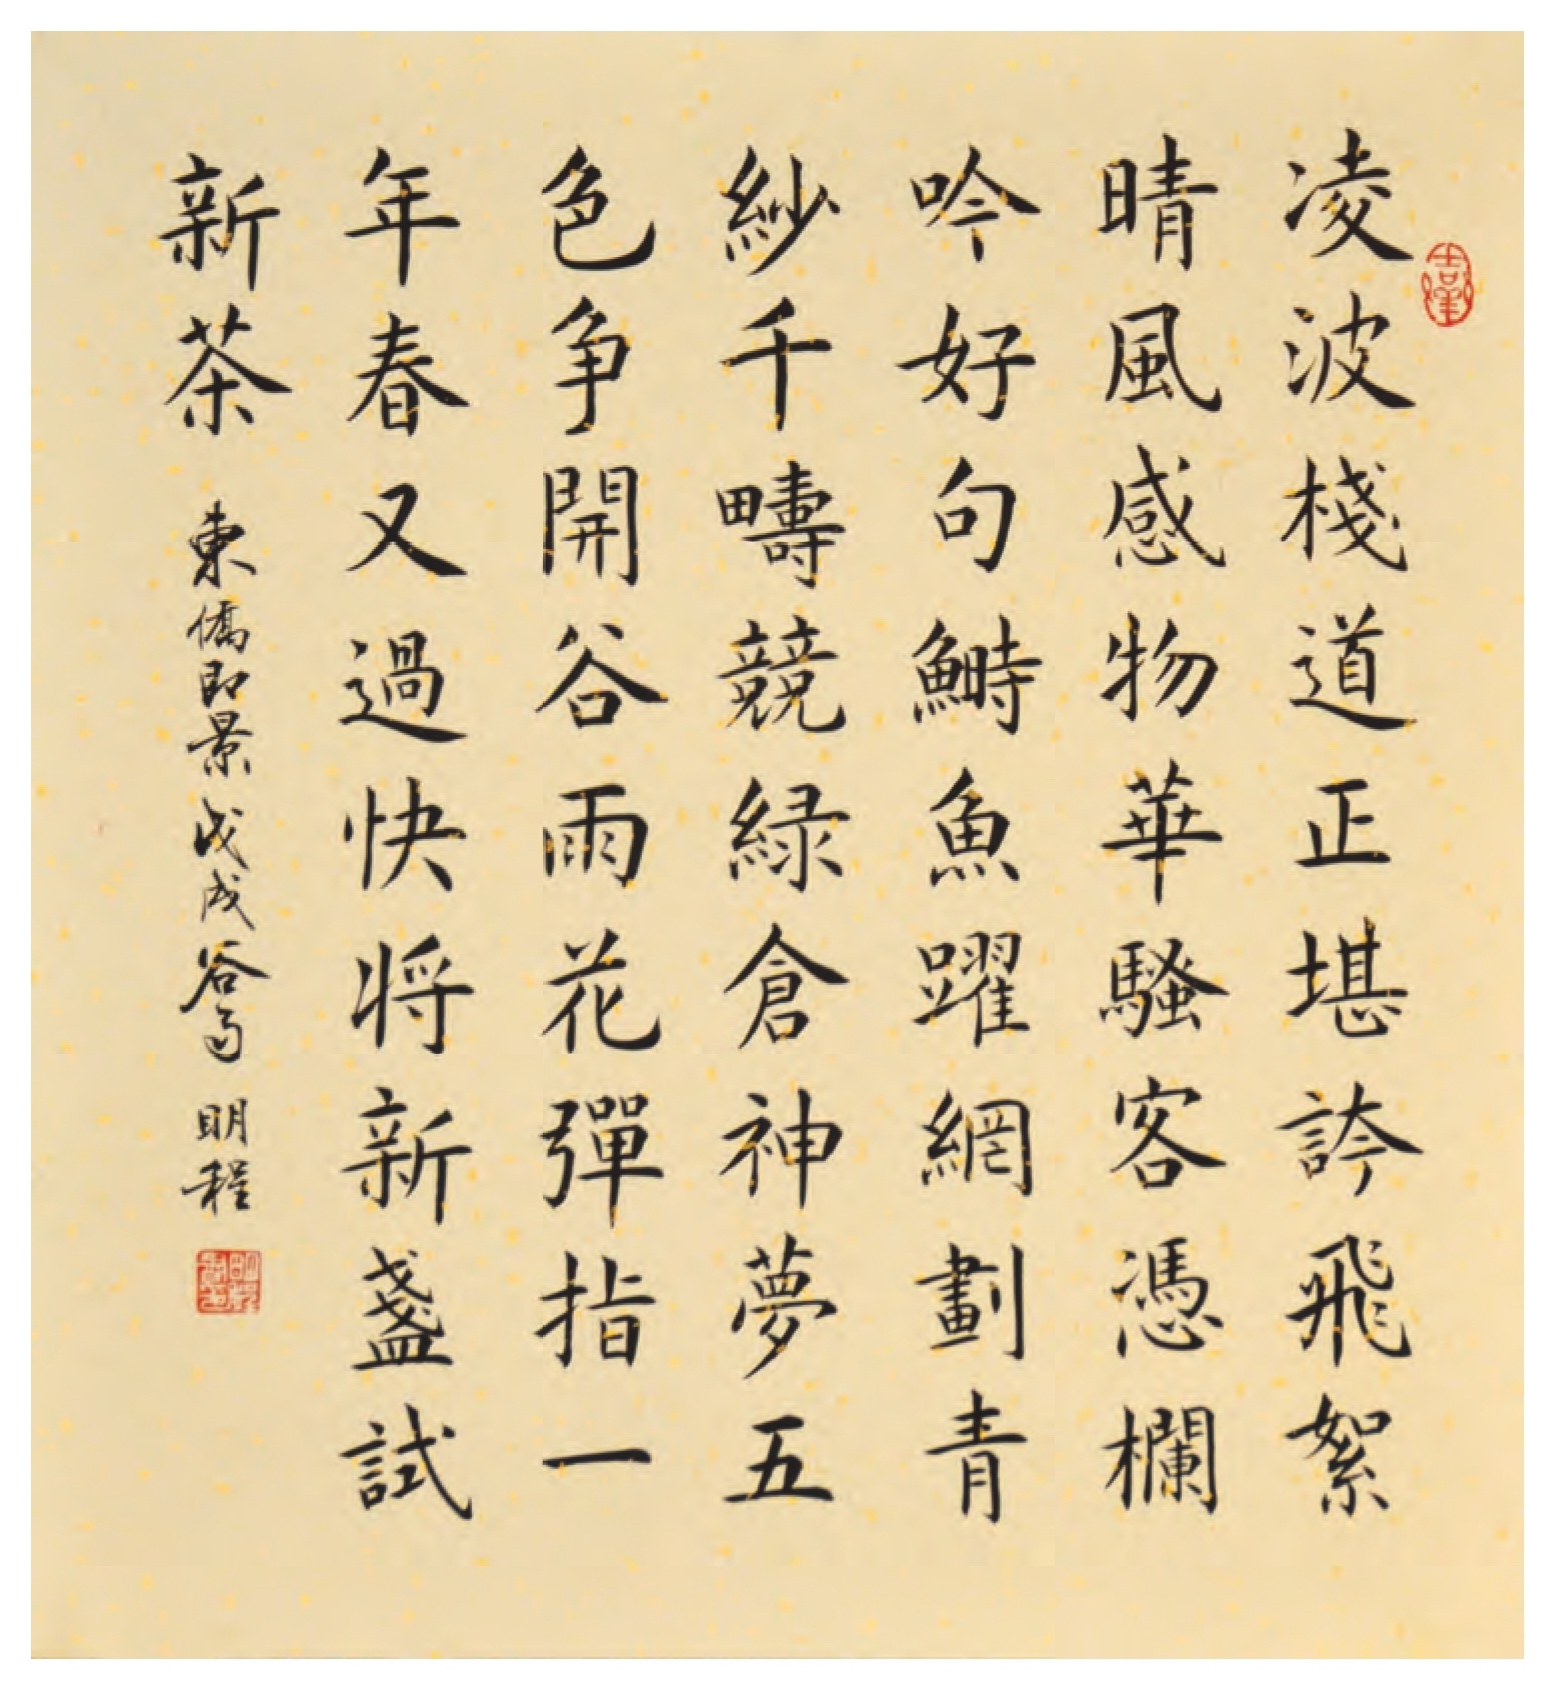 凌波棧道正堪誇飛絮
晴風感物華騷客憑欄
吟好句鰣魚躍網劃青
紗千疇競緑倉神夢五
色争開谷雨花彈指一
年春又過快将新盞試
新茶
東僑即景戊戌谷雨明程